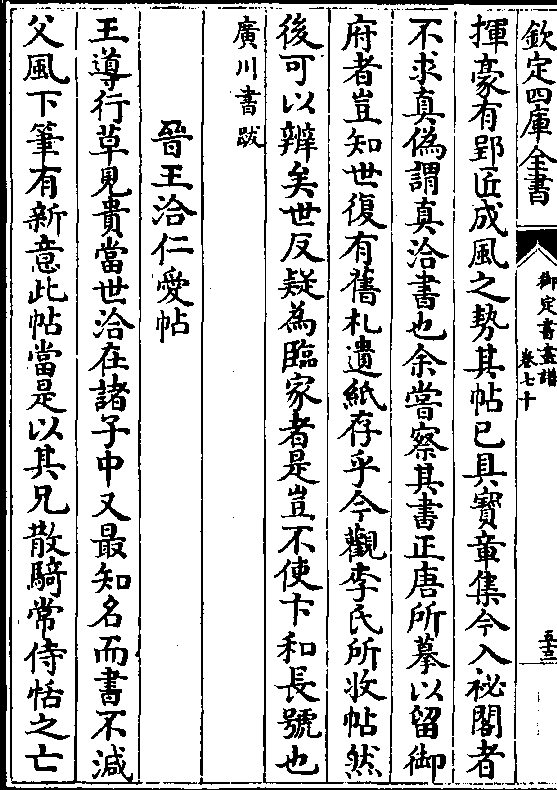 欽定四庫全書
御定書畫譜
卷七十
揮豪有郢匠成風之勢其帖已具寶章集今入祕閣者
不求真偽謂真洽書也余嘗察其書正唐所摹以留御
府者豈知世復有舊札遺紙存乎今觀李氏所收帖然
後可以辨矣世反疑為臨家者是豈不使卞和長號也
廣川書跋
晉王洽仁愛帖
王導行草見貴當世洽在諸子中又最知名而書不減
父風下筆有新意此帖當是以其兄散騎常侍恬之亡